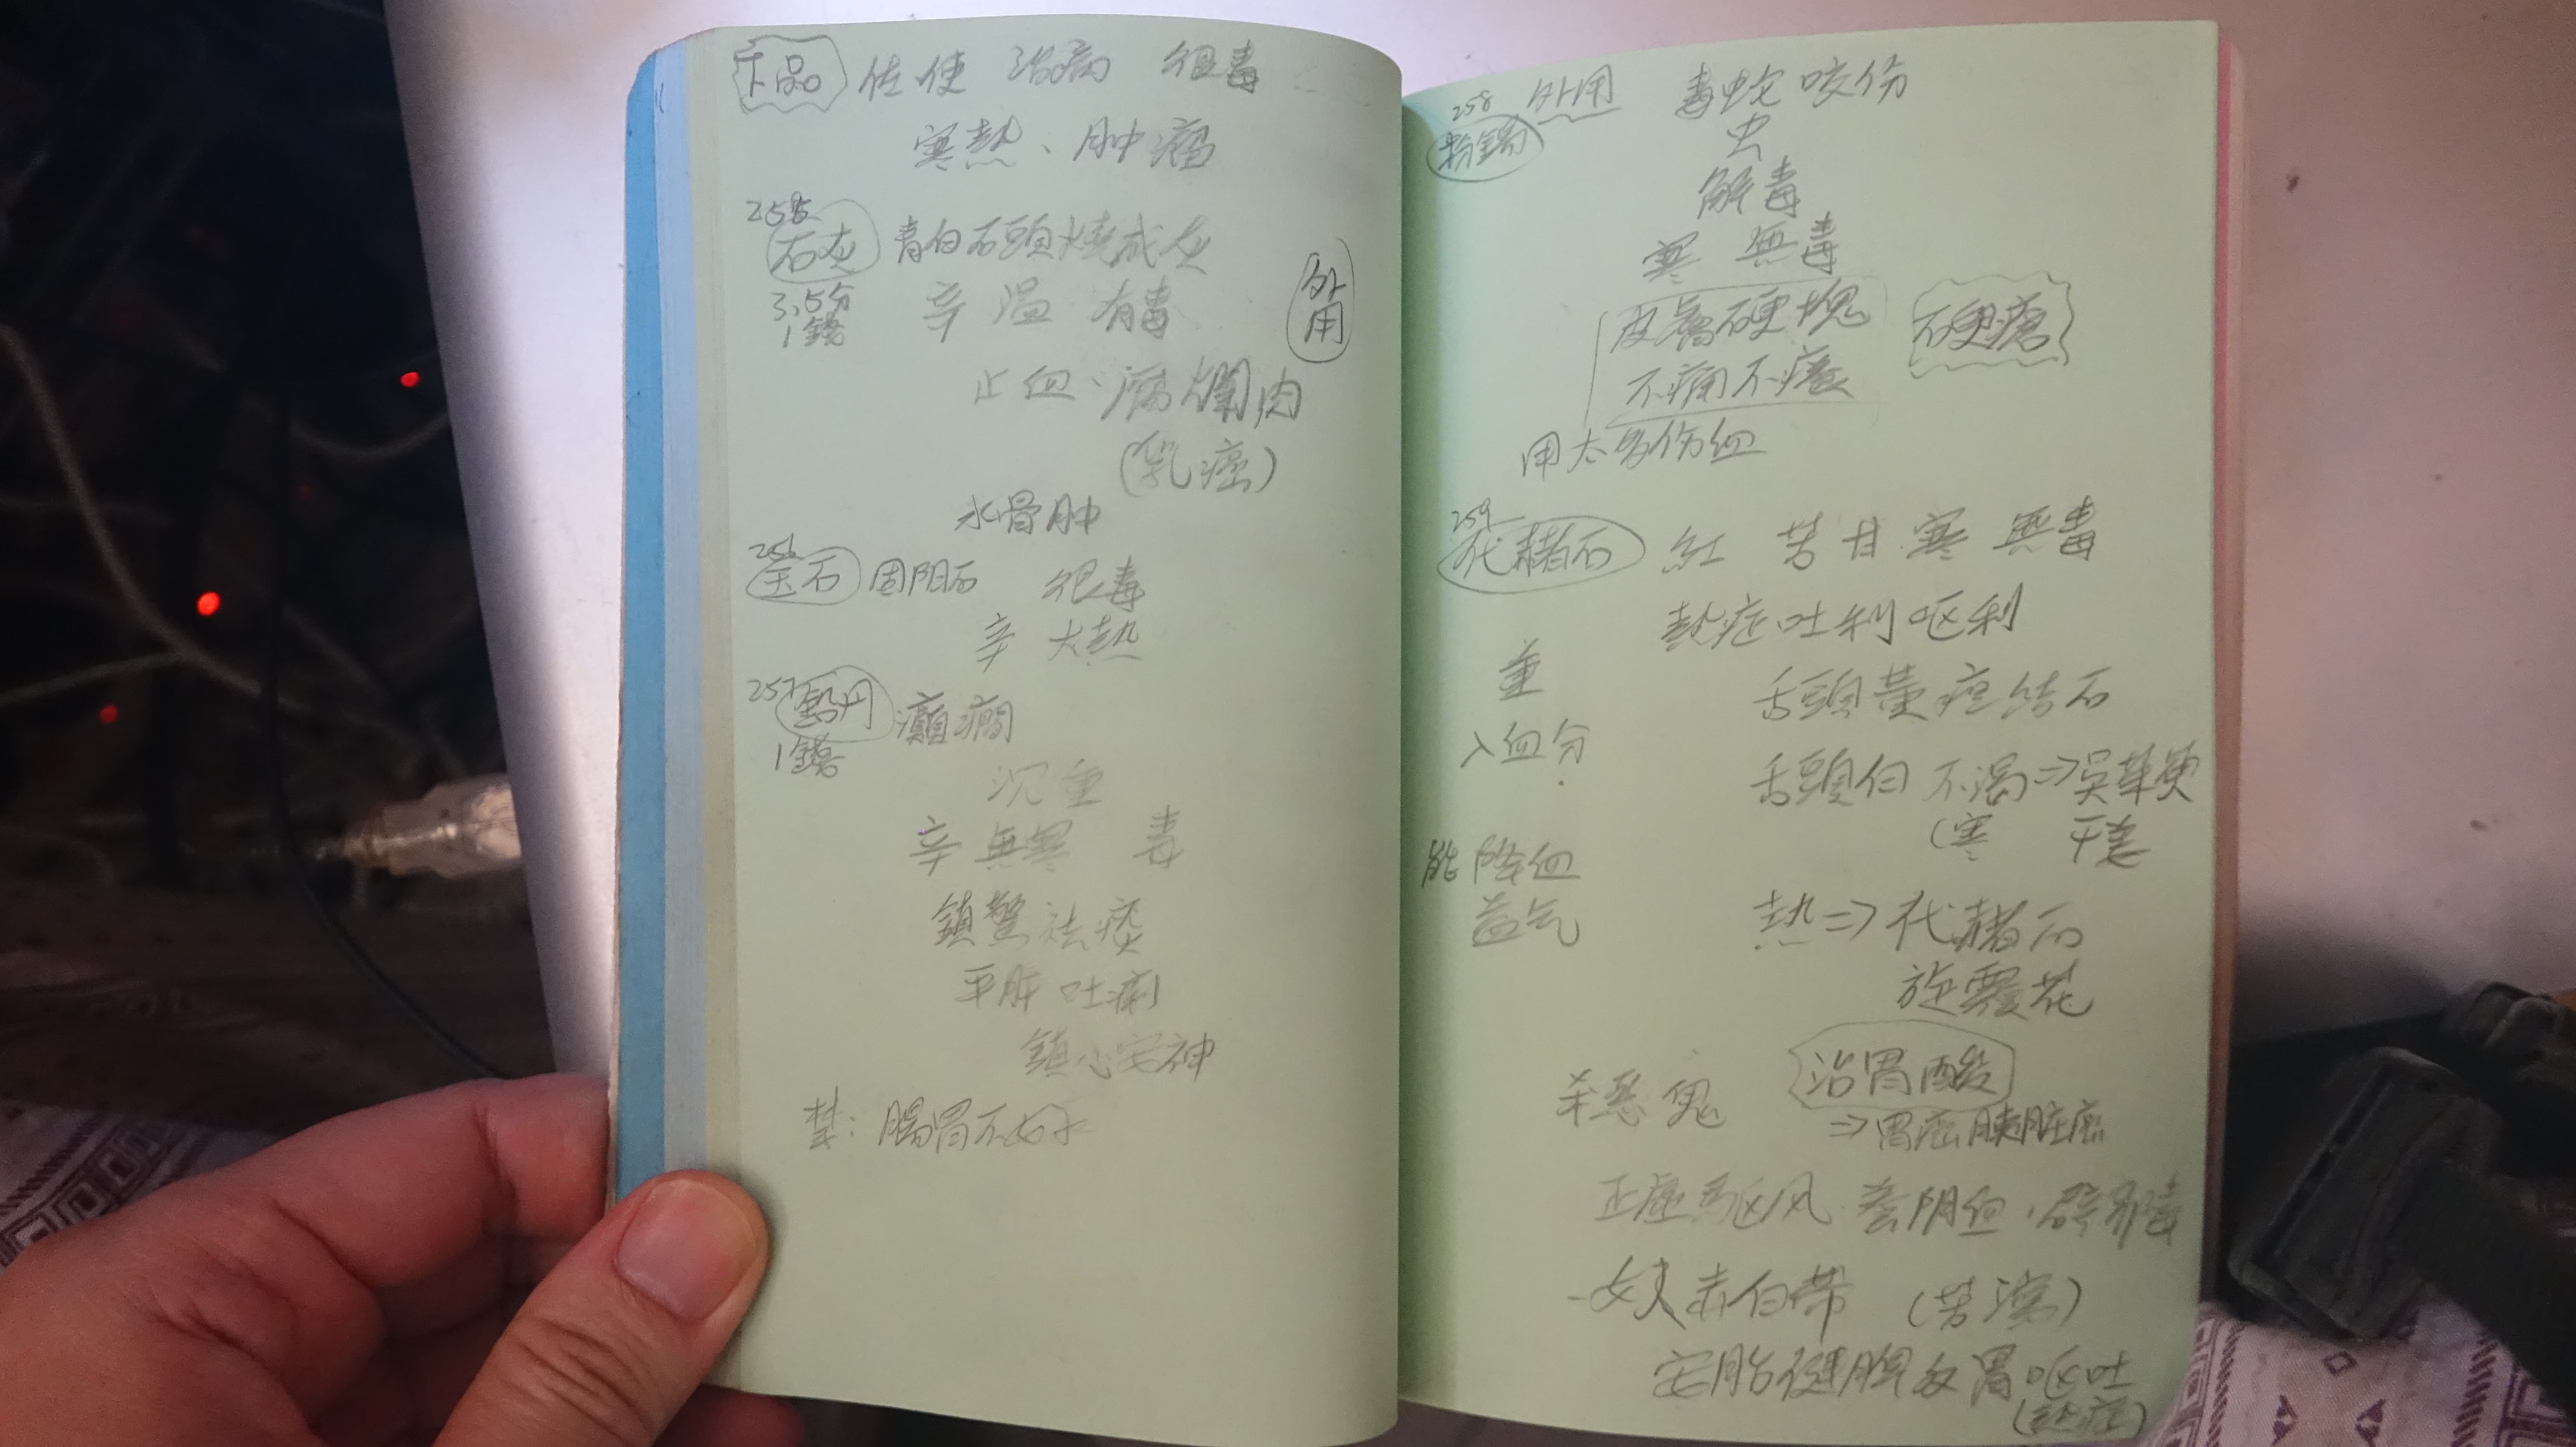 下品 佐使 治病 很毒
寒熱、肿瘤
255
石灰 青白石頭燒成灰
3,5分
1錢
辛 溫 有毒
外用
止血、腐爛肉
(乳癌)
水骨肿
256
石 固阴石 很毒
辛 大熱
257
鉛丹 癲癇
1錢
沉重
辛 無寒 毒
鎮驚祛痰
平肝 吐痢
鎮心安神
禁:腸胃不好
258
粉錫 外用 毒蛇咬伤
虫
解毒
寒 無毒
皮膚硬塊
不痛不癢
硬瘡
用太多伤血
259
代赭石 紅 苦甘寒 無毒
熱症吐利呕利
重
入血分
舌頭黄 痘 结石
舌頭白 不渴⇒吳茱萸
(寒 干姜
能降血
益气
熱⇒代赭石
旋覆花
杀恶鬼
治胃酸
⇒胃癌胰脏癌
正虚驱风 养阴血、辟
赤白带 (苦澀)
安胎健脾反胃呕吐
(熱症)